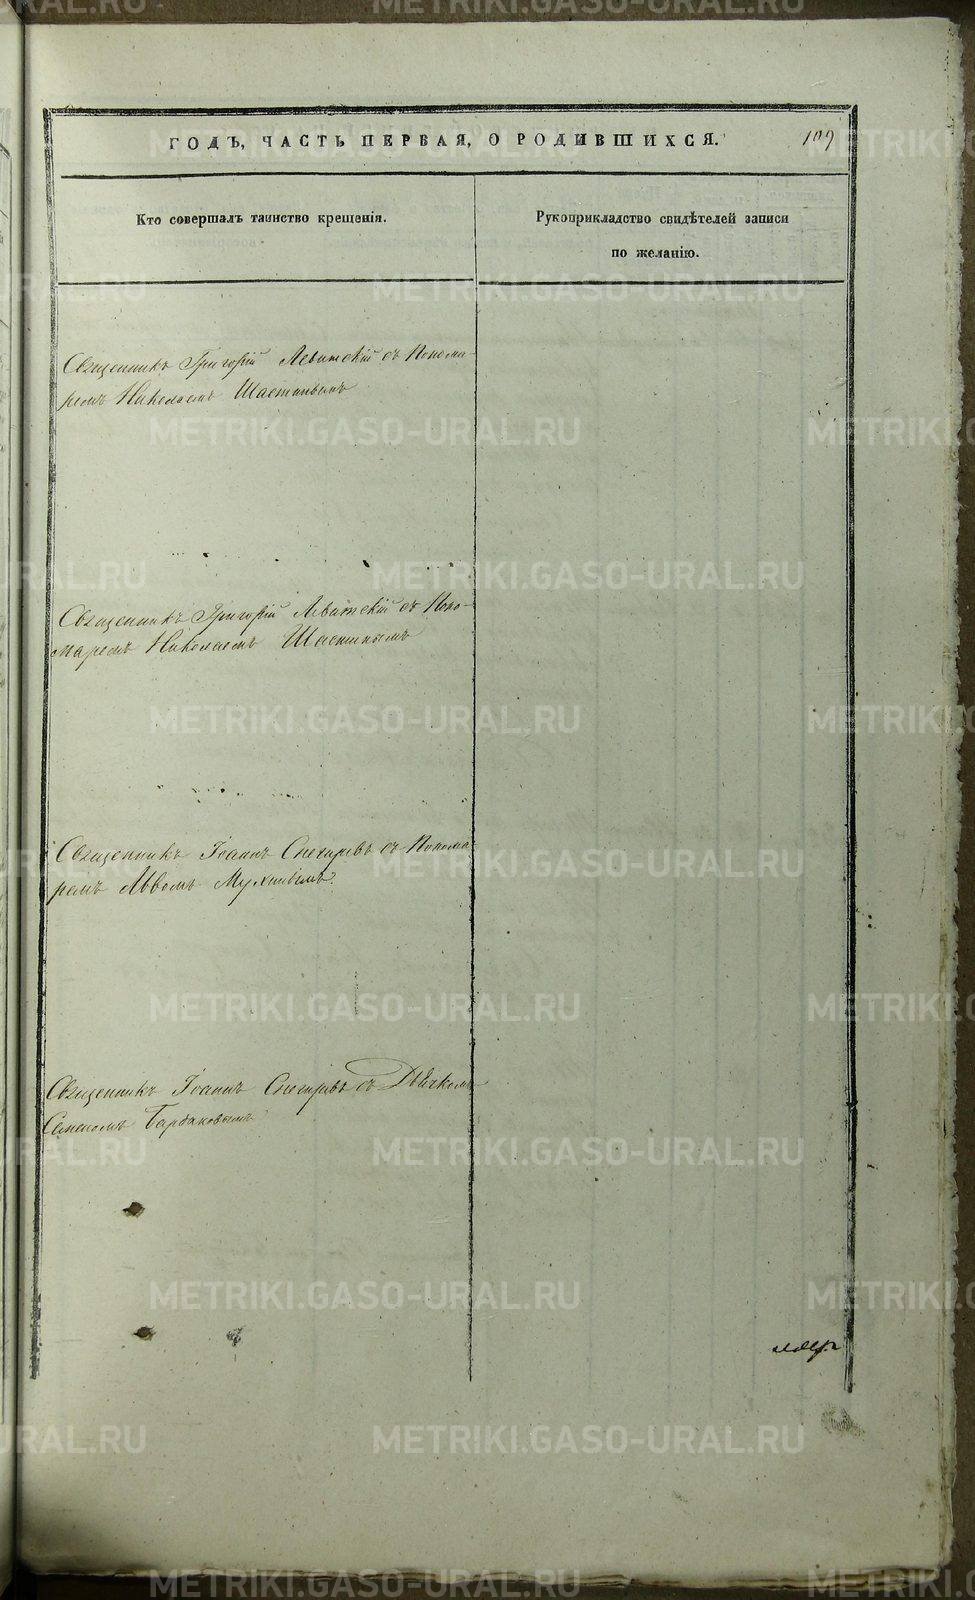 ГОДЪ, ЧАСТЬ ПЕРВАЯ, О РОДИВШИХСЯ.
109
Кто совершалъ таинство крещенія.
Рукоприкладство свидѣтелей записи
по желанію.
Священникъ Григорій Левитскій съ Понома-
ремъ Николаемъ Шастинымъ
Священникъ Григорій Левитскій съ Поно-
маремъ Николаемъ Шастинымъ
Священникъ Іоаннъ Снегиревъ съ Понома-
ремъ Львомъ Мухинымъ
Священникъ Іоаннъ Снегиревъ съ Дьячкомъ
Семеномъ Барбаковымъ
METRIKI.GASO-URAL.RU